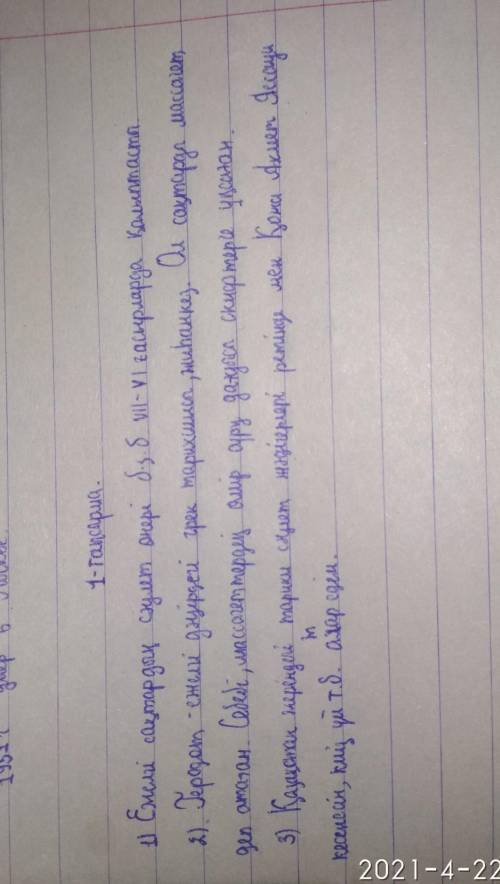 1-тапсырма.
1) Ежелі сақтардың сәулет өнері б.з.б VII-VI ғасырларда қалыптасты
2). Геродот - ежелі дәуірдегі грек тарихшысы, жиһанкез. Ол сақтарды массагет
деп атаған. Себебі, массагеттердің өмір сүру дағдысы скифтерге ұқсаған.
3) Қазақстан жеріндегі тарихи сәулет жәдігерлері ретінде мен Қожа Ахмет Яссауи
кесенесін, киіз үй т.б. атар едім.
2021-4-22